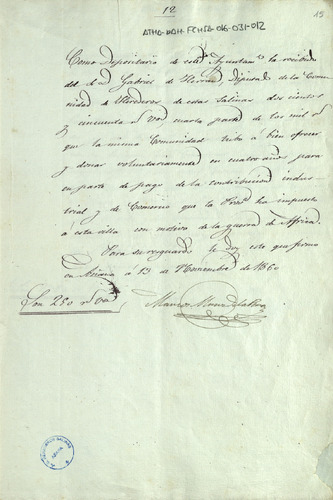 12
15
ATHA-DAH-FCHSA-016-031-012
Como Depositario de este Ayuntamto he recibido
del Sr Dn Gabriel de Herran, Diputado de la Comu
nidad de Herederos de estas Salinas doscientos
y cincuenta rs von cuarta parte de los mil rs
que la misma Comunidad tubo á bien ofrecer
y donar voluntariamente en cuatro años para
en parte de pago de la contribucion indus
trial y de Comercio que la Prova ha impuesto
á esta villa con motivo de la guerra de Africa.
Para su resguardo le doy este que firmo
en Añana á 13 de Noviembre de 1860
Son 250 rs von